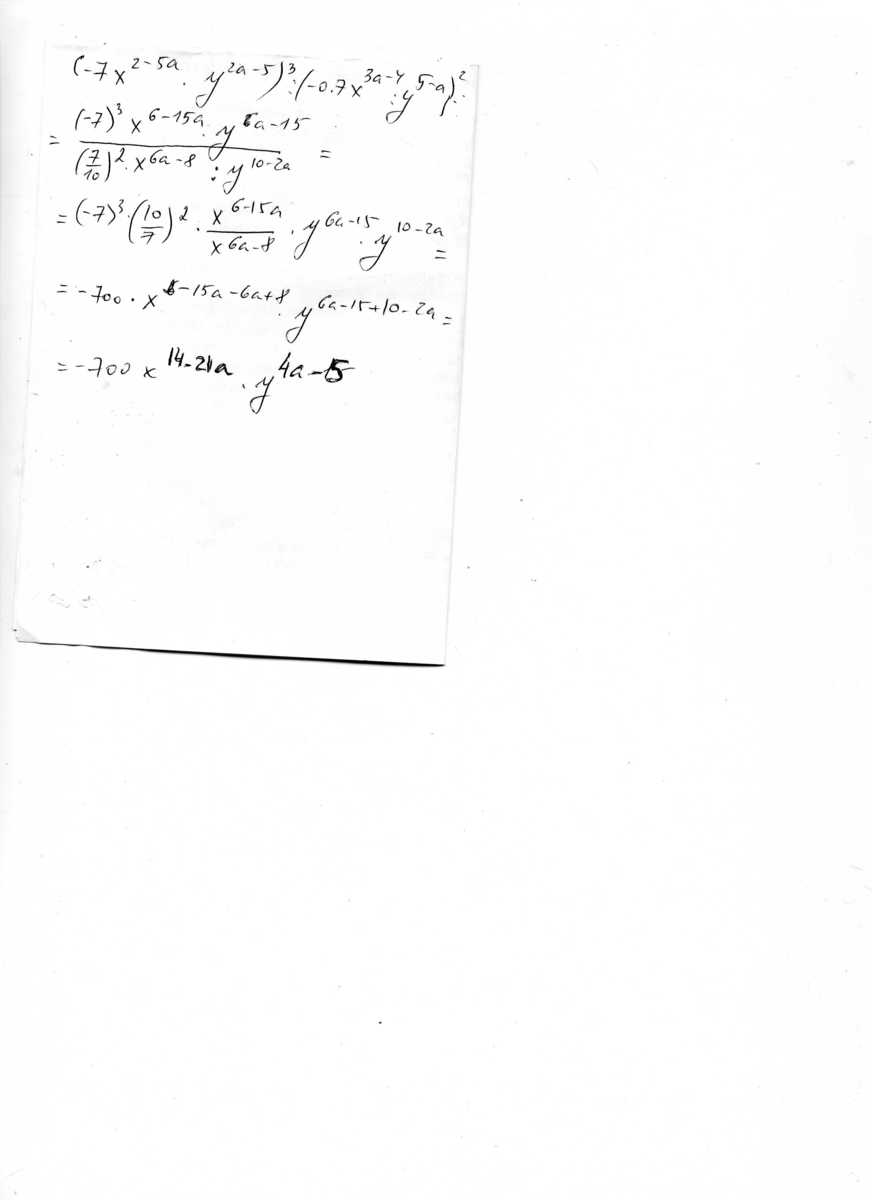 (-7x^{2-5a} · y^{2a-5})^3 : (-0.7x^{3a-4} : y^{5-a})^2 =
= \frac{(-7)^3 x^{6-15a} · y^{6a-15}}{(\frac{7}{10})^2 · x^{6a-8} : y^{10-2a}} =
= (-7)^3 · (\frac{10}{7})^2 · \frac{x^{6-15a}}{x^{6a-8}} · y^{6a-15} · y^{10-2a} =
= -700 · x^{6-15a-6a+8} · y^{6a-15+10-2a} =
= -700 x^{14-21a} · y^{4a-5}